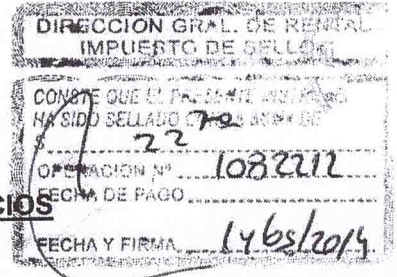 DIRECCION GRAL. DE RENTAS
IMPUESTO DE SELLOS
CONSTE QUE EL PRESENTE
HA SIDO SELLADO
$ 22
OPERACION Nº 1082212
FECHA DE PAGO
CIOS
FECHA Y FIRMA